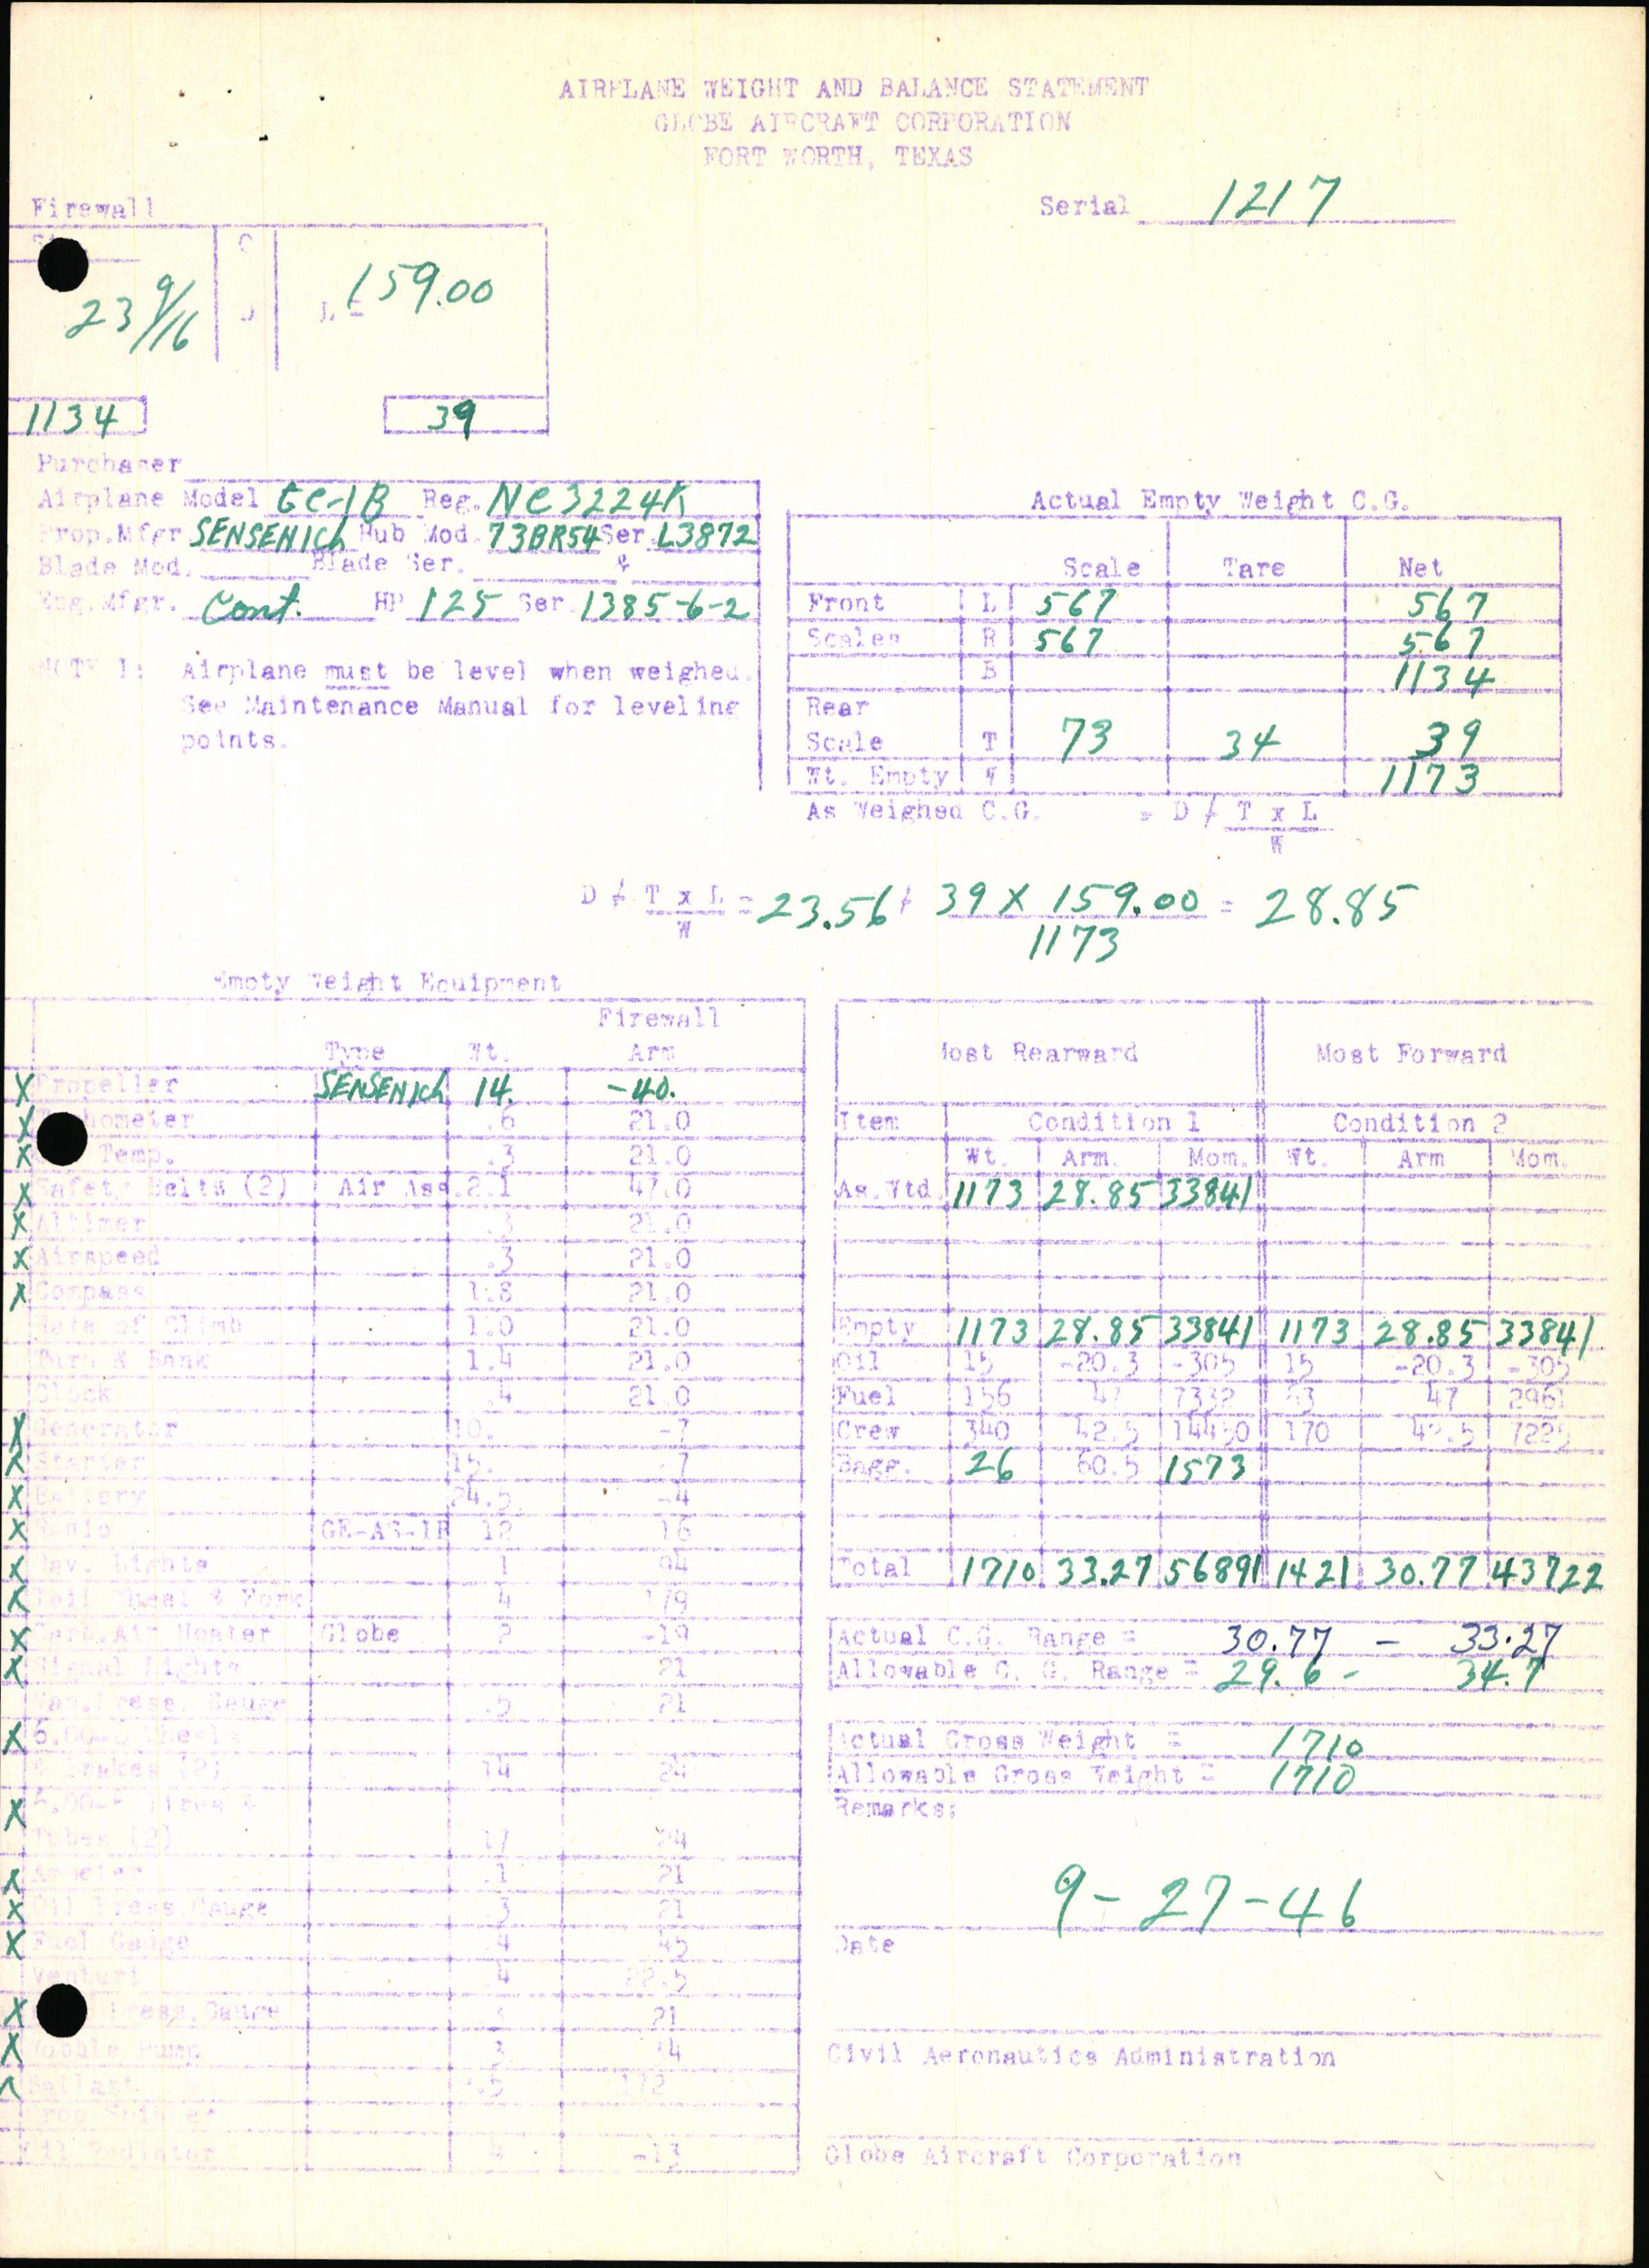 AIRPLANE WEIGHT AND BALANCE STATEMENT
GLOBE AIRCRAFT CORPORATION
FORT WORTH, TEXAS
Serial 1217
Firewall
C
23 9/16 D L = 159.00
1134 39
Purchaser
Airplane Model GC-1B Reg. NC3224K
Prop.Mfgr SENSENICH Hub Mod. 73BR54 Ser. L3872
Blade Mod. Blade Ser. &
Eng.Mfgr. Cont. HP 125 Ser. 1385-6-2
NOTE 1: Airplane must be level when weighed.
See Maintenance Manual for leveling
points.
Actual Empty Weight C.G.
Scale Tare Net
Front L 567 567
Scales R 567 567
B 1134
Rear
Scale T 73 34 39
Wt. Empty W 1173
As Weighed C.G. = D + T x L
W
D + T x L = 23.56 + 39 X 159.00 = 28.85
W 1173
Empty Weight Equipment
Firewall
Type Wt. Arm
X Propeller SENSENICH 14. -40.
X Tachometer .6 21.0
X Temp. .3 21.0
X Safety Belts (2) Air Ass. 2.1 47.0
X Altimer .3 21.0
X Airspeed .3 21.0
X Compass 1.8 21.0
Rate of Climb 1.0 21.0
Turn & Bank 1.4 21.0
Clock .4 21.0
X Generator 10. -7
X Starter 15. -7
X Battery 24.5 -4
X Radio GE-AS-1B 12 16
X Nav. Lights 1 94
X Tail Wheel & Fork 4 179
X Carb.Air Heater Globe 2 -19
X Signal Lights 21
Man.Press. Gauge .5 21
X 6.00-6 Wheels
& Brakes (2) 14 24
X 6.00-6 Tires &
Tubes (2) 17 24
X Ammeter .1 21
X Oil Press.Gauge .3 21
X Fuel Gauge .4 45
Venturi .4 22.5
X Press.Gauge 21
X Wobble Pump
X Ballast 172
Prop Spinner
Oil Radiator -13
Most Rearward Most Forward
Item Condition 1 Condition 2
Wt. Arm. Mom. Wt. Arm Mom.
As.Wtd. 1173 28.85 33841
Empty 1173 28.85 33841 1173 28.85 33841
Oil 15 -20.3 -305 15 -20.3 -305
Fuel 156 47 7332 63 47 2961
Crew 340 42.5 14450 170 42.5 7225
Bagg. 26 60.5 1573
Total 1710 33.27 56891 1421 30.77 43722
Actual C.G. Range = 30.77 - 33.27
Allowable C. G. Range = 29.6 - 34.7
Actual Gross Weight = 1710
Allowable Gross Weight = 1710
Remarks:
9-27-46
Date
Civil Aeronautics Administration
Globe Aircraft Corporation